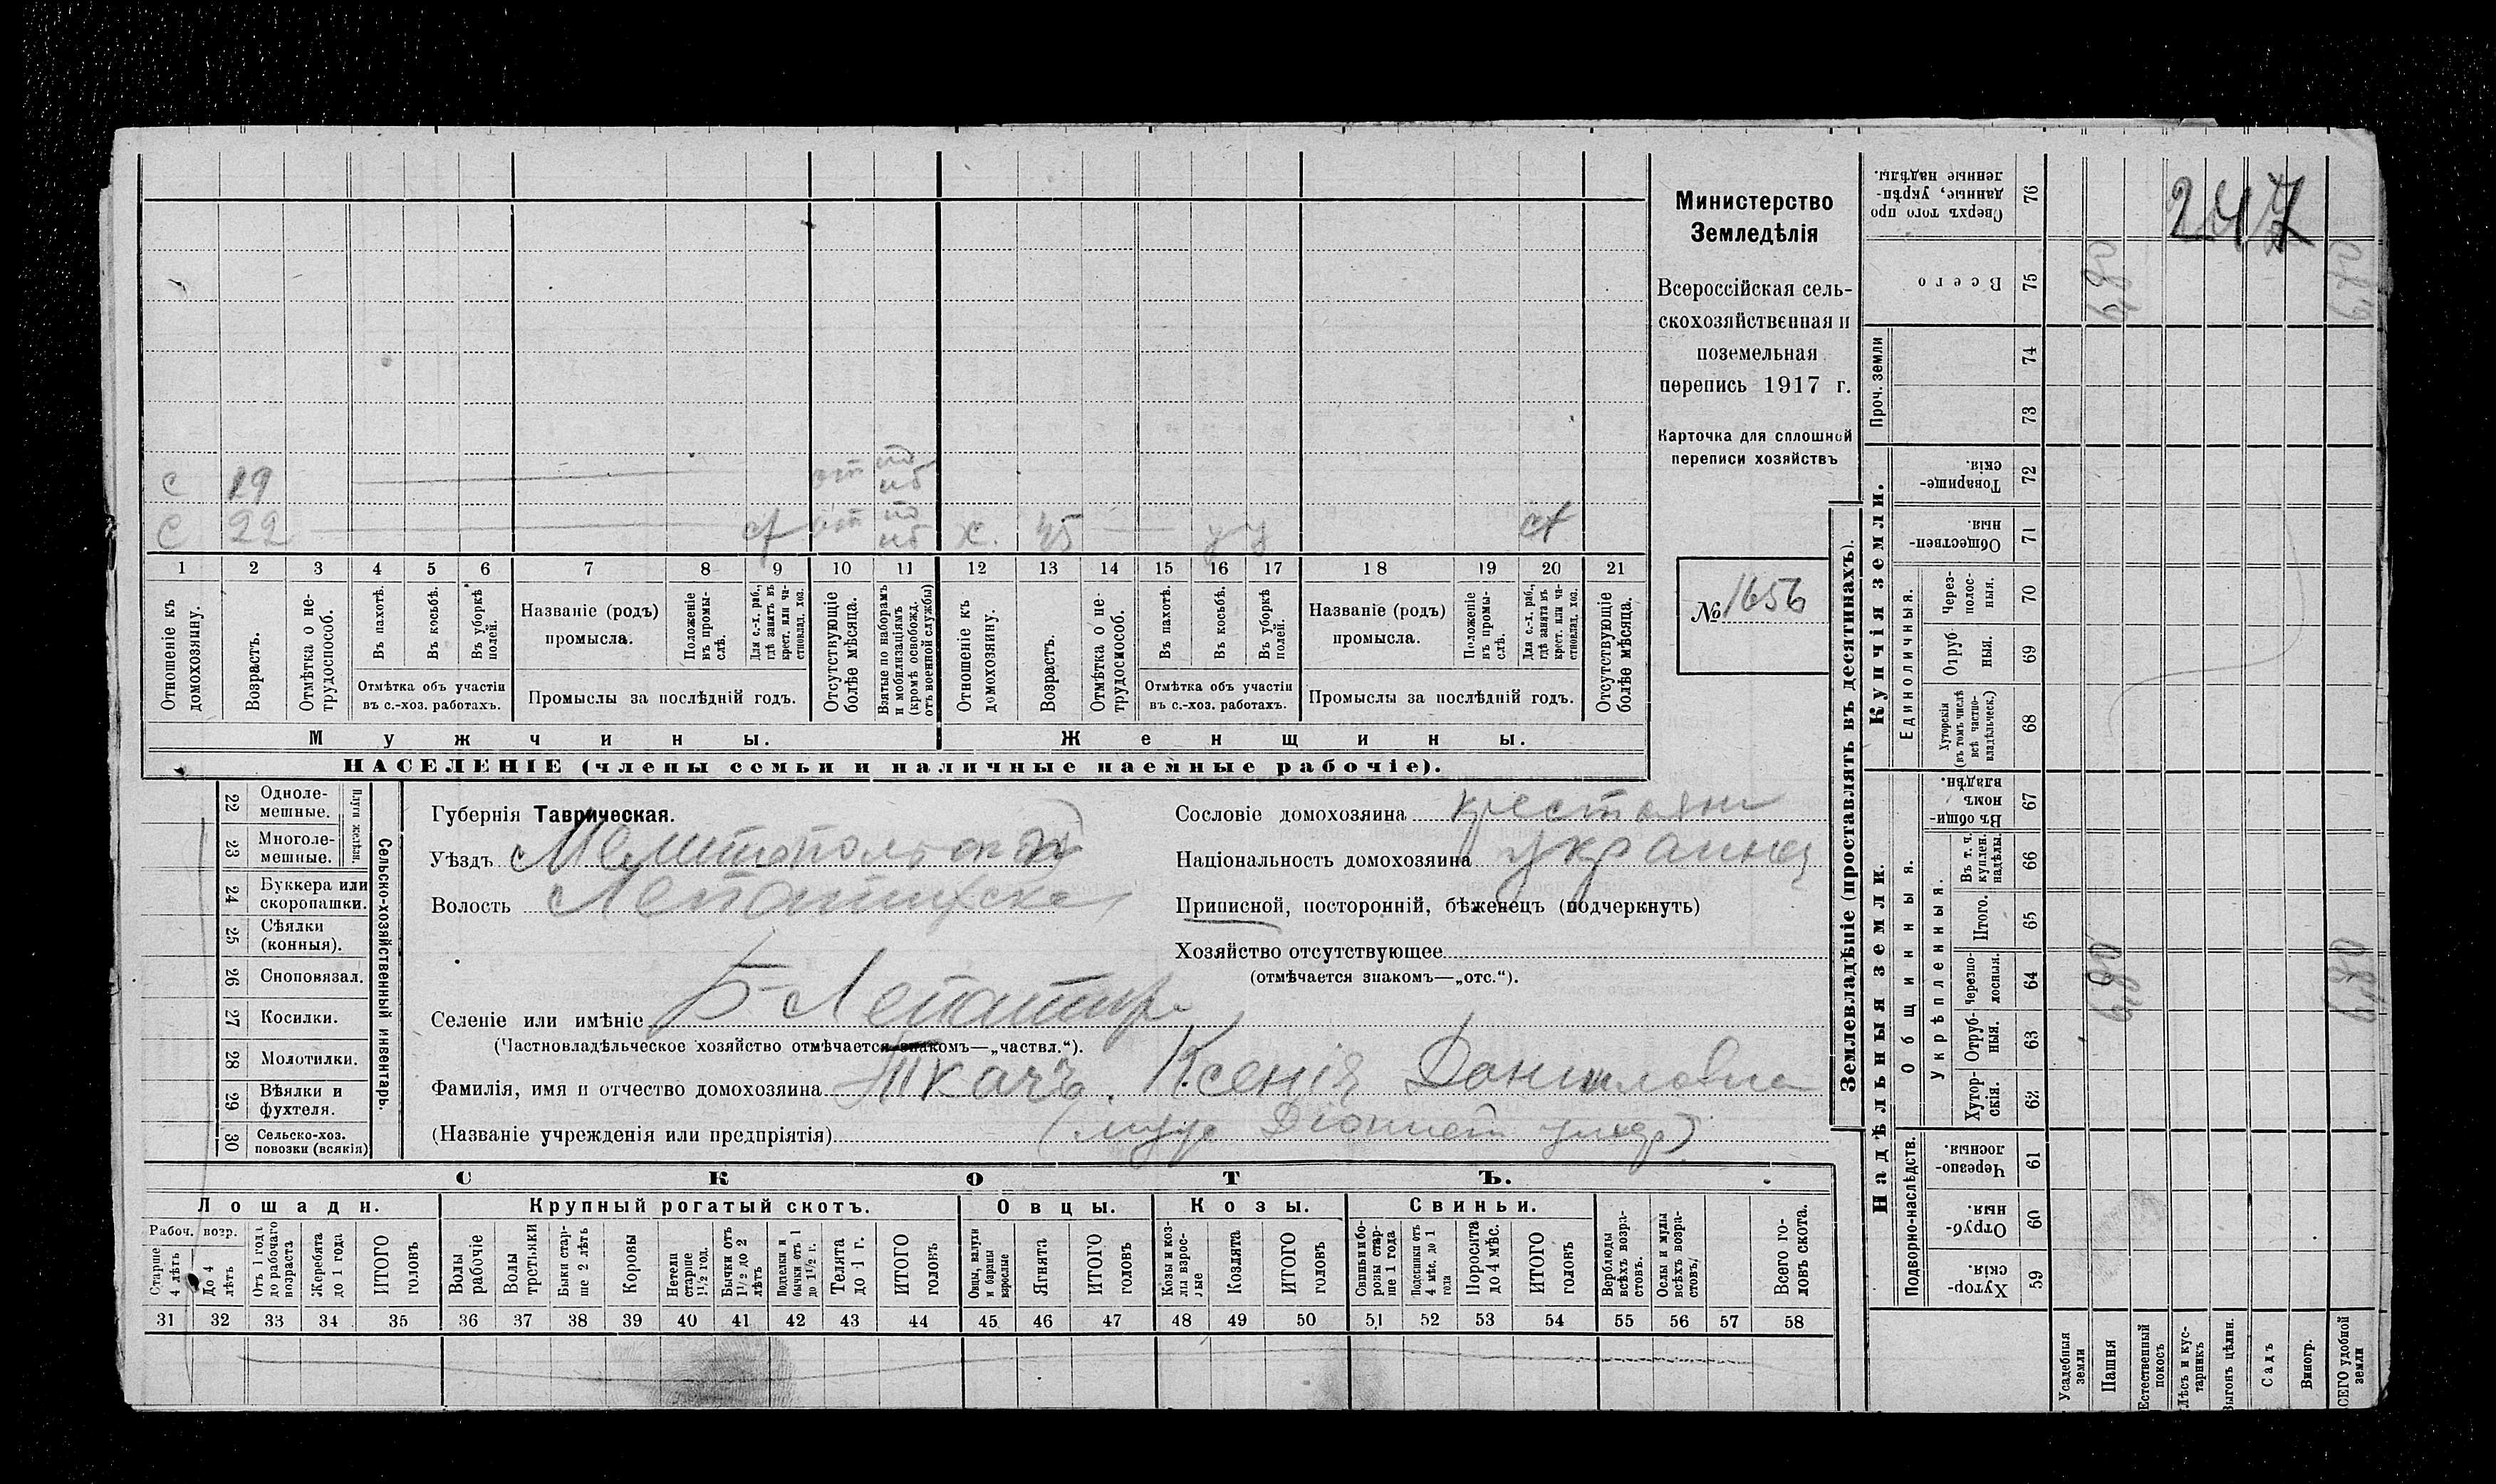 247
Министерство
Земледѣлія
Всероссійская сель-
скохозяйственная и
поземельная
перепись 1917 г.
Карточка для сплошной
переписи хозяйствъ
№ 1656
с 19
с 22 ст
ж. 45 у у ст
1 2 3 4 5 6 7 8 9 10 11 12 13 14 15 16 17 18 19 20 21
Отношеніе къ домохозяину.
Возрастъ.
Отмѣтка о не-трудоспособ.
Въ пахотѣ.
Въ косьбѣ.
Въ уборкѣ полей.
Отмѣтка объ участіи
въ с.-хоз. работахъ.
Названіе (родъ)
промысла.
Положеніе въ промы-слѣ.
Для с.-х. раб., гдѣ занятъ въ крест. или ча-стновлад. хоз.
Промыслы за послѣдній годъ.
Отсутствующіе болѣе мѣсяца.
Взятые по наборамъ и мобилизаціямъ (кромѣ освобожд. отъ военной службы)
Отношеніе къ домохозяину.
Возрастъ.
Отмѣтка о не-трудоспособ.
Въ пахотѣ.
Въ косьбѣ.
Въ уборкѣ полей.
Отмѣтка объ участіи
въ с.-хоз. работахъ.
Названіе (родъ)
промысла.
Положеніе въ промы-слѣ.
Для с.-х. раб., гдѣ занята въ крест. или ча-стновлад. хоз.
Промыслы за послѣдній годъ.
Отсутствующіе болѣе мѣсяца.
Мужчины.
Женщины.
НАСЕЛЕНІЕ (члены семьи и наличные наемные рабочіе).
Сельско-хозяйственный инвентарь.
Плуги желѣзн.
22 Одноле-мешные.
23 Многоле-мешные.
24 Буккера или скоропашки.
25 Сѣялки (конныя).
26 Сноповязал.
27 Косилки.
28 Молотилки.
29 Вѣялки и фухтеля.
30 Сельско-хоз. повозки (всякія)
Губернія Таврическая.
Уѣздъ Мелитопольский
Волость Лепатихска
Селеніе или имѣніе Б-Лепатиха
(Частновладѣльческое хозяйство отмѣчается знакомъ—„частвл.“).
Фамилія, имя и отчество домохозяина Ткачъ. Ксенія Даниловна
(Названіе учрежденія или предпріятія)
Сословіе домохозяина крестьян
Національность домохозяина украинц
Приписной, посторонній, бѣженецъ (подчеркнуть)
Хозяйство отсутствующее
(отмѣчается знакомъ—„отс.“).
СКОТЪ.
Лошади.
Крупный рогатый скотъ.
Овцы.
Козы.
Свиньи.
Рабоч. возр.
Старше 4 лѣтъ
До 4 лѣтъ
Отъ 1 года до рабочаго возраста
Жеребята до 1 года
ИТОГО головъ
Волы рабочіе
Волы третьяки
Быки стар-ше 2 лѣтъ
Коровы
Нетели старше 1½ год.
Бычки отъ 1½ до 2 лѣтъ
Подтелки и бычки отъ 1 до 1½ г.
Телята до 1 г.
ИТОГО головъ
Овцы, валухи и бараны взрослые
Ягнята
ИТОГО головъ
Козы и коз-лы взрос-лые
Козлята
ИТОГО головъ
Свиньи и бо-ровы стар-ше 1 года
Подсвинки отъ 4 мѣс. до 1 года
Поросята до 4 мѣс.
ИТОГО головъ
Верблюды всѣхъ возра-стовъ.
Ослы и мулы всѣхъ возра-стовъ.
Всего го-ловъ скота.
31 32 33 34 35 36 37 38 39 40 41 42 43 44 45 46 47 48 49 50 51 52 53 54 55 56 57 58
Землевладѣніе (проставлять въ десятинахъ).
Надѣльныя земли.
Купчія земли.
Проч. земли
Подворно-наслѣдств.
Общинныя.
Укрѣпленныя.
Единоличныя.
59 Хутор-скія.
60 Отруб-ныя.
61 Черезпо-лосныя.
62 Хутор-скія.
63 Отруб-ныя.
64 Черезпо-лосныя.
65 Итого.
66 Въ т. ч. куплен. надѣлы.
67 Въ общи-номъ владѣн.
68 Хуторскія (въ томъ числѣ всѣ частно-владѣльческ.)
69 Отруб-ныя.
70 Через-полос-ныя.
71 Обществен-ныя.
72 Товарище-скія.
73
74
75 Всего
76 Сверхъ того про-данные, укрѣп-ленные надѣлы.
Усадебныя земли
Пашня
Естественный покосъ
Лѣсъ и кус-тарникъ
Выгонъ цѣлин.
Садъ
Виногр.
ВСЕГО удобной земли